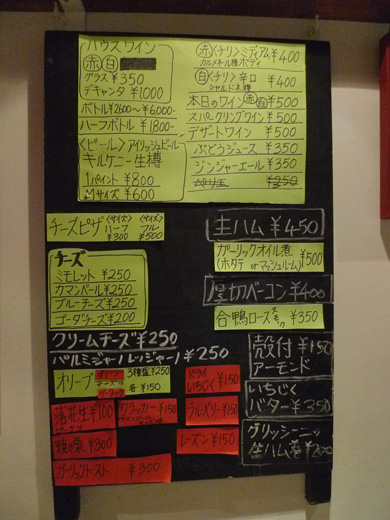 ハウスワイン
赤 白
グラス ¥350
デキャンタ ¥1000
ボトル¥2600〜¥6,000-
ハーフボトル ¥1800-
〈ビール〉アイリッシュビール
キルケニー生樽
1パイント ¥800
¥600
赤 〈チリ〉ミディアム ¥400
カルメネール種 ボディ
白 〈チリ〉辛口 ¥400
シャルドネ種
本日のワイン 赤 白 ¥500
スパークリングワイン ¥500
デザートワイン ¥500
ぶどうジュース ¥350
ジンジャーエール ¥350
ペリエ ¥250
チーズピザ 〈サイズ〉ハーフ ¥300 〈サイズ〉フル ¥500
生ハム ¥450
ガーリックオイル煮 ¥500
(ホタテ or マッシュルーム)
チーズ
ミモレット ¥250
カマンベール ¥250
ブルーチーズ ¥250
ゴーダチーズ ¥200
厚切ベーコン ¥400
合鴨ロース ¥350
クリームチーズ ¥250
パルミジャーノレッジャーノ ¥250
殻付 ¥150
アーモンド
オリーブ グリーン 3種盛 ¥250
各 ¥150
ドライ
いちじく ¥150
いちじく
バター ¥350
落花生 ¥100
クラッカー ¥150
ブルーベリー ¥150
焼き栗 ¥300
レーズン ¥150
グリッシーニッ
生ハム巻 ¥200
ガーリックトースト ¥300